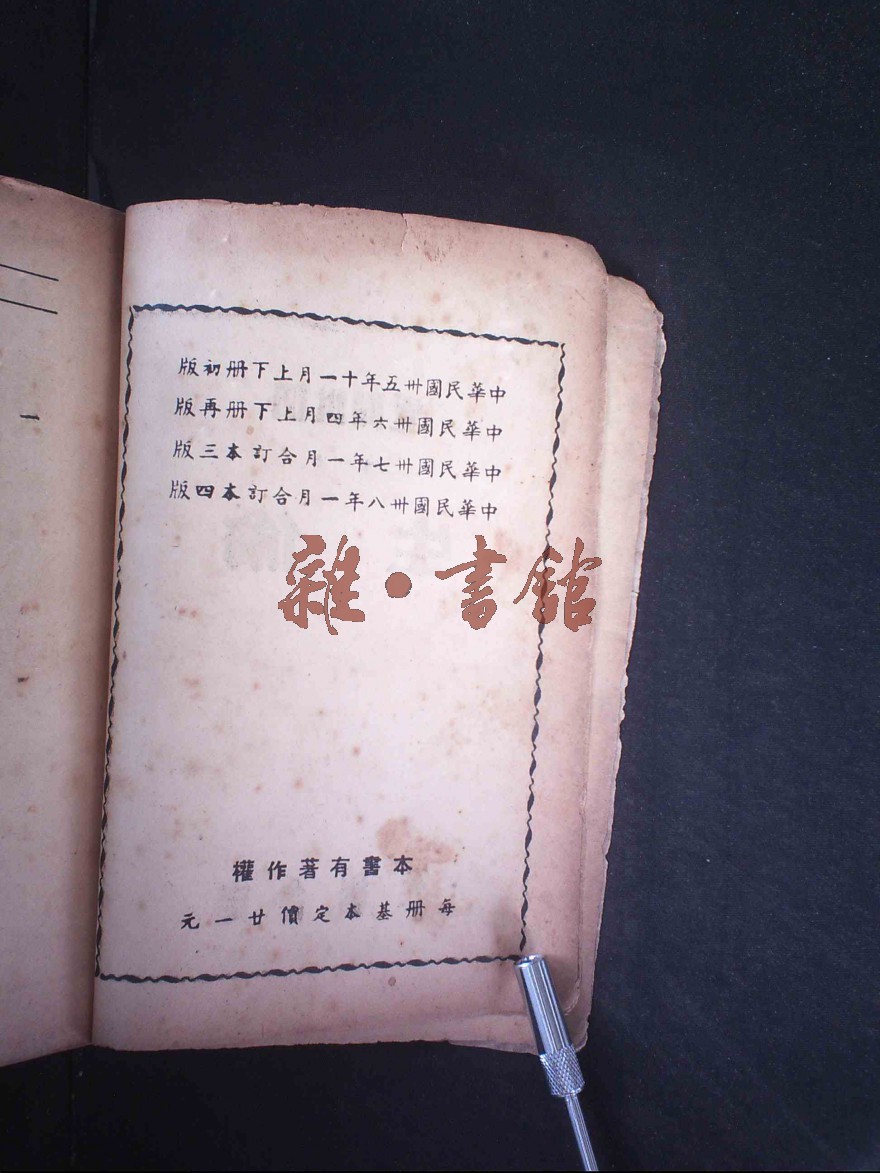 中華民國卅五年十一月上下册初版
中華民國卅六年四月上下册再版
中華民國卅七年一月合訂本三版
中華民國卅八年一月合訂本四版
雜·書館
本書有著作權
每册基本定價廿一元
一